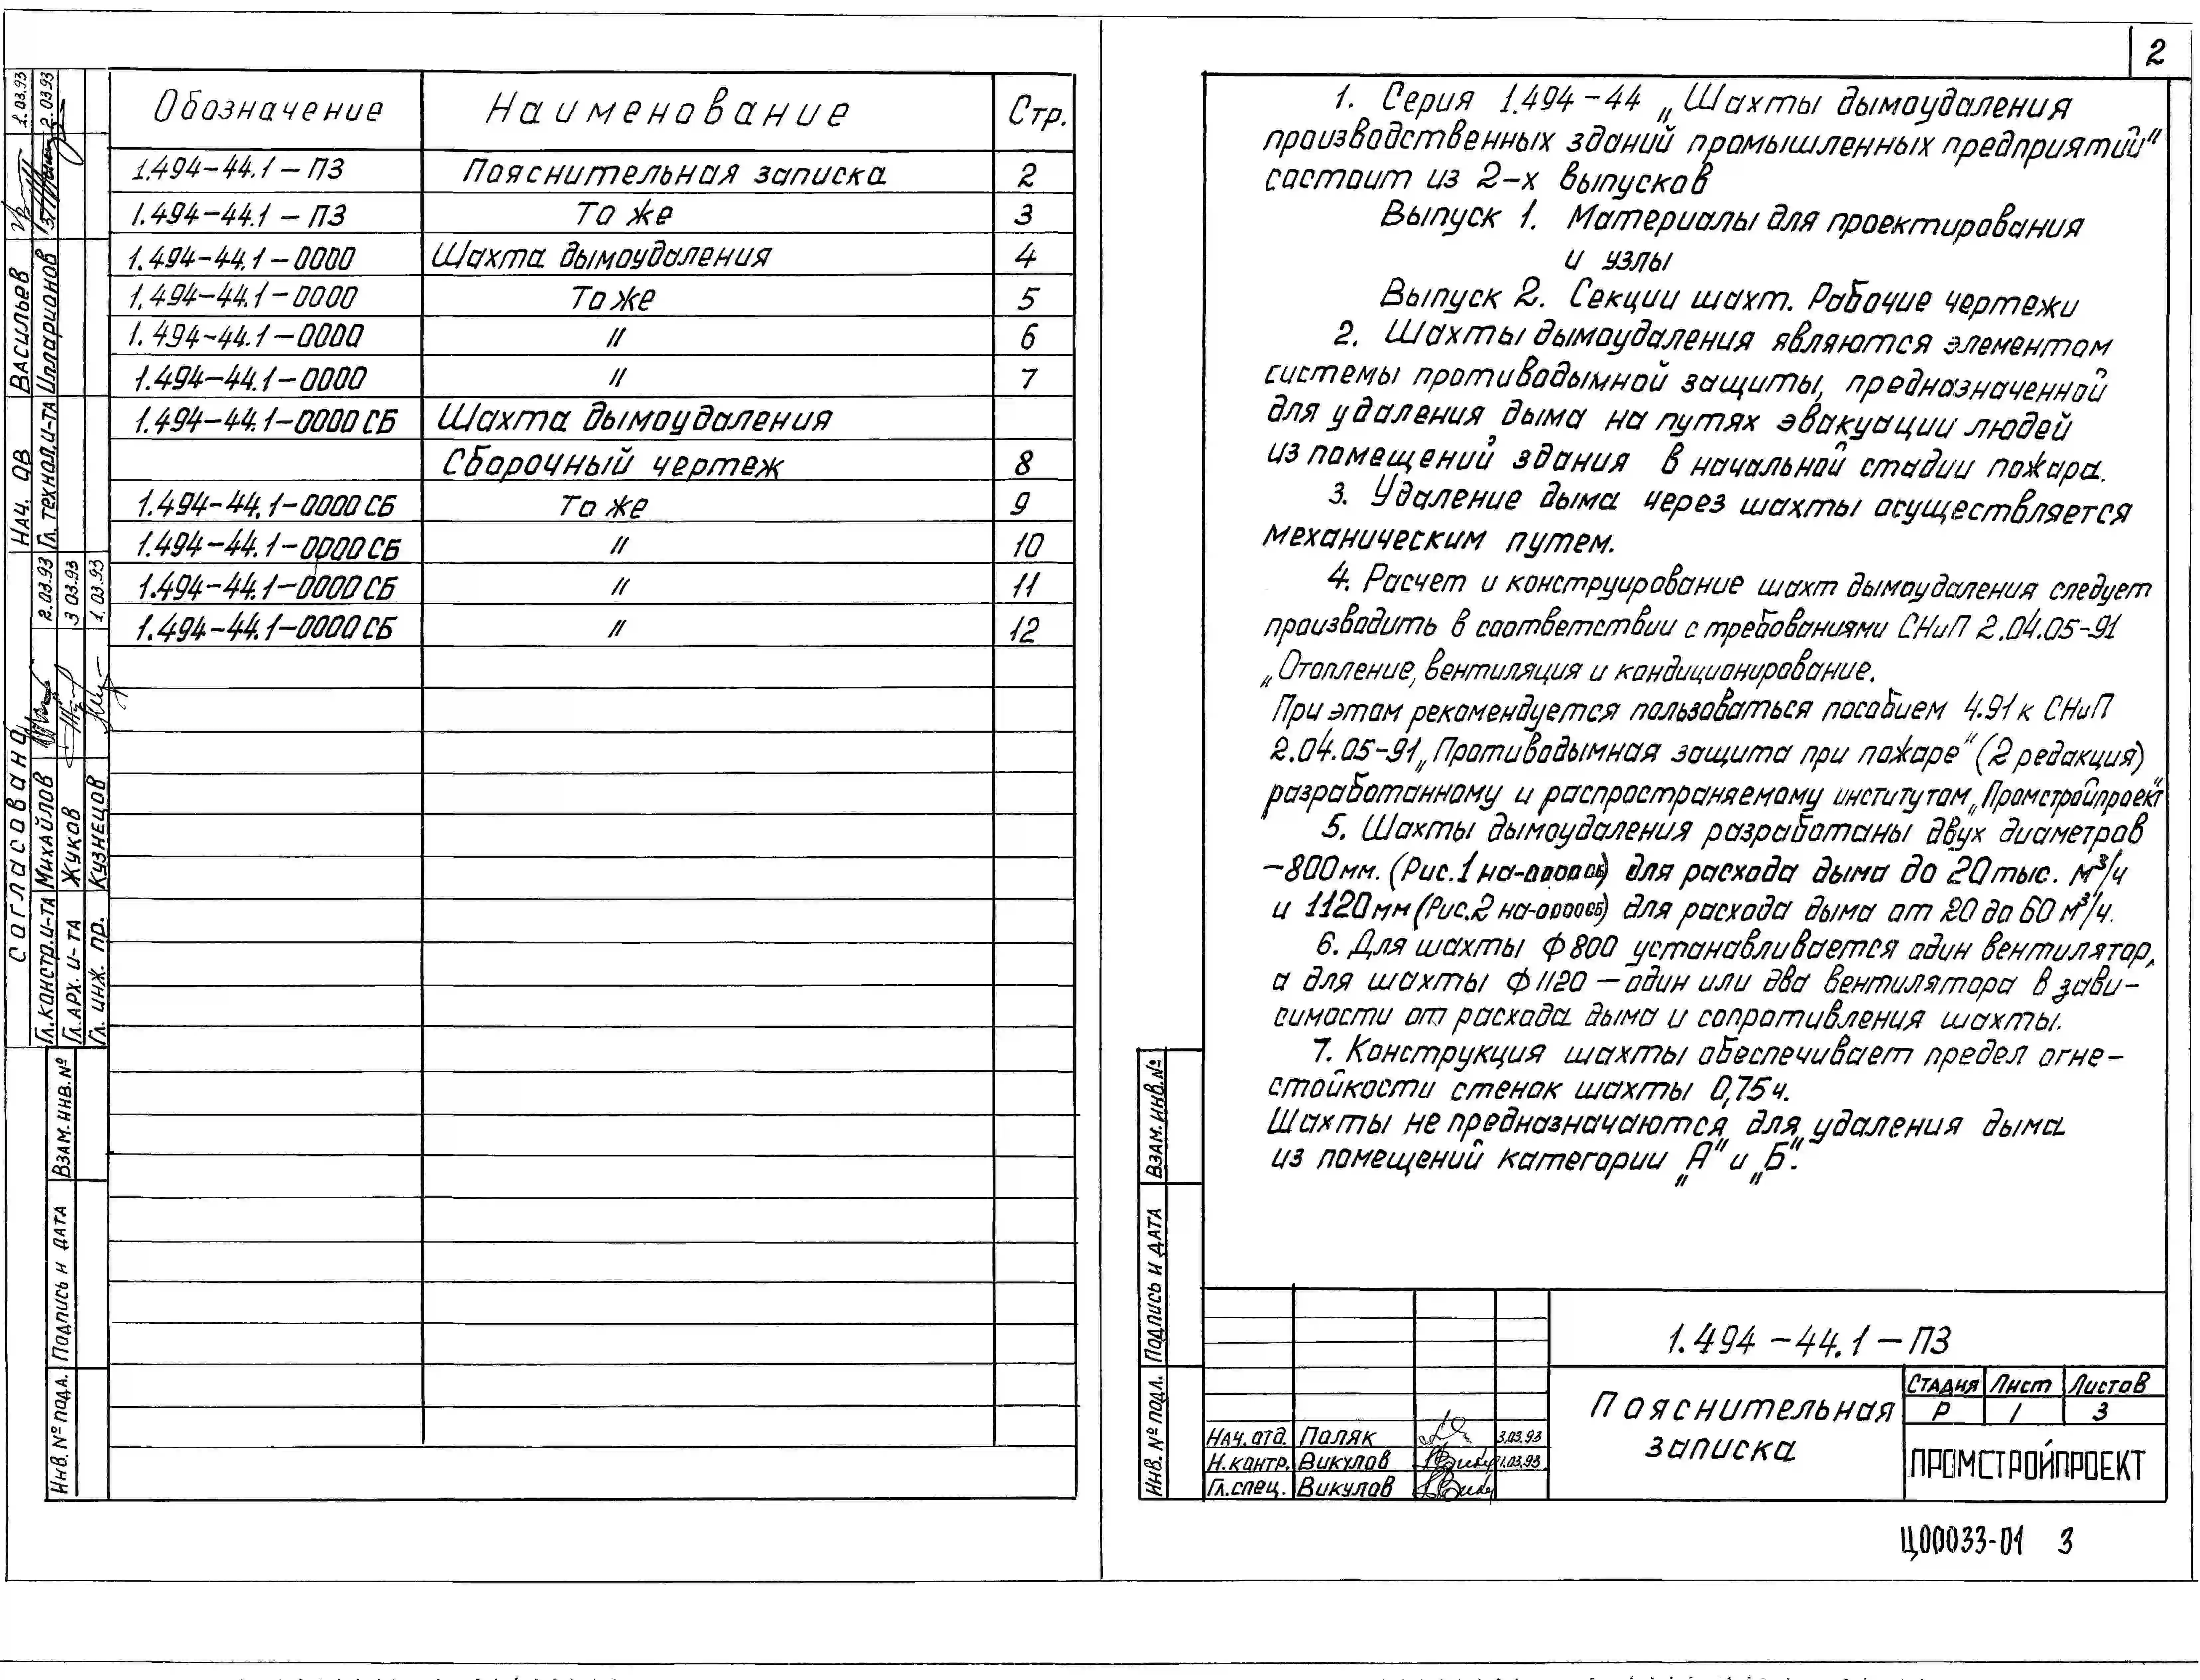 Обозначение Наименование Стр.
1.494-44.1-ПЗ Пояснительная записка 2
1.494-44.1-ПЗ То же 3
1.494-44.1-0000 Шахта дымоудаления 4
1.494-44.1-0000 То же 5
1.494-44.1-0000 " 6
1.494-44.1-0000 " 7
1.494-44.1-0000СБ Шахта дымоудаления
Сборочный чертеж 8
1.494-44.1-0000СБ То же 9
1.494-44.1-0000СБ " 10
1.494-44.1-0000СБ " 11
1.494-44.1-0000СБ " 12
Согласовано
Нач. ОВ Васильев 1.03.93
Гл. технол. и-та Илларионов 2.03.93
Гл. констр. и-та Михайлов 2.03.93
Гл. арх. и-та Жуков 3 03.93
Гл. инж. пр. Кузнецов 1.03.93
Взам. инв. №
Подпись и дата
Инв. № подл.
2
1. Серия 1.494-44 „Шахты дымоудаления
производственных зданий промышленных предприятий"
состоит из 2-х выпусков
Выпуск 1. Материалы для проектирования
и узлы
Выпуск 2. Секции шахт. Рабочие чертежи
2. Шахты дымоудаления являются элементом
системы противодымной защиты, предназначенной
для удаления дыма на путях эвакуации людей
из помещений здания в начальной стадии пожара.
3. Удаление дыма через шахты осуществляется
механическим путем.
4. Расчет и конструирование шахт дымоудаления следует
производить в соответствии с требованиями СНиП 2.04.05-91
„Отопление, вентиляция и кондиционирование.
При этом рекомендуется пользоваться пособием 4.91 к СНиП
2.04.05-91 „Противодымная защита при пожаре" (2 редакция)
разработанному и распространяемому институтом „Промстройпроект"
5. Шахты дымоудаления разработаны двух диаметров
-800мм. (Рис.1 на-0000СБ) для расхода дыма до 20 тыс. м³/ч
и 1120мм (Рис.2 на-0000СБ) для расхода дыма от 20 до 60 м³/ч.
6. Для шахты ф 800 устанавливается один вентилятор,
а для шахты ф 1120 — один или два вентилятора в зави-
симости от расхода дыма и сопротивления шахты.
7. Конструкция шахты обеспечивает предел огне-
стойкости стенок шахты 0,75ч.
Шахты не предназначаются для удаления дыма
из помещений категории „А" и „Б".
Взам. инв. №
Подпись и дата
Инв. № подл.
1.494-44.1-ПЗ
Пояснительная
записка
Стадия Лист Листов
Р 1 3
ПРОМСТРОЙПРОЕКТ
Нач. отд. Поляк 3.03.93
Н. контр. Викулов 1.03.93
Гл. спец. Викулов
Ц00033-01 3